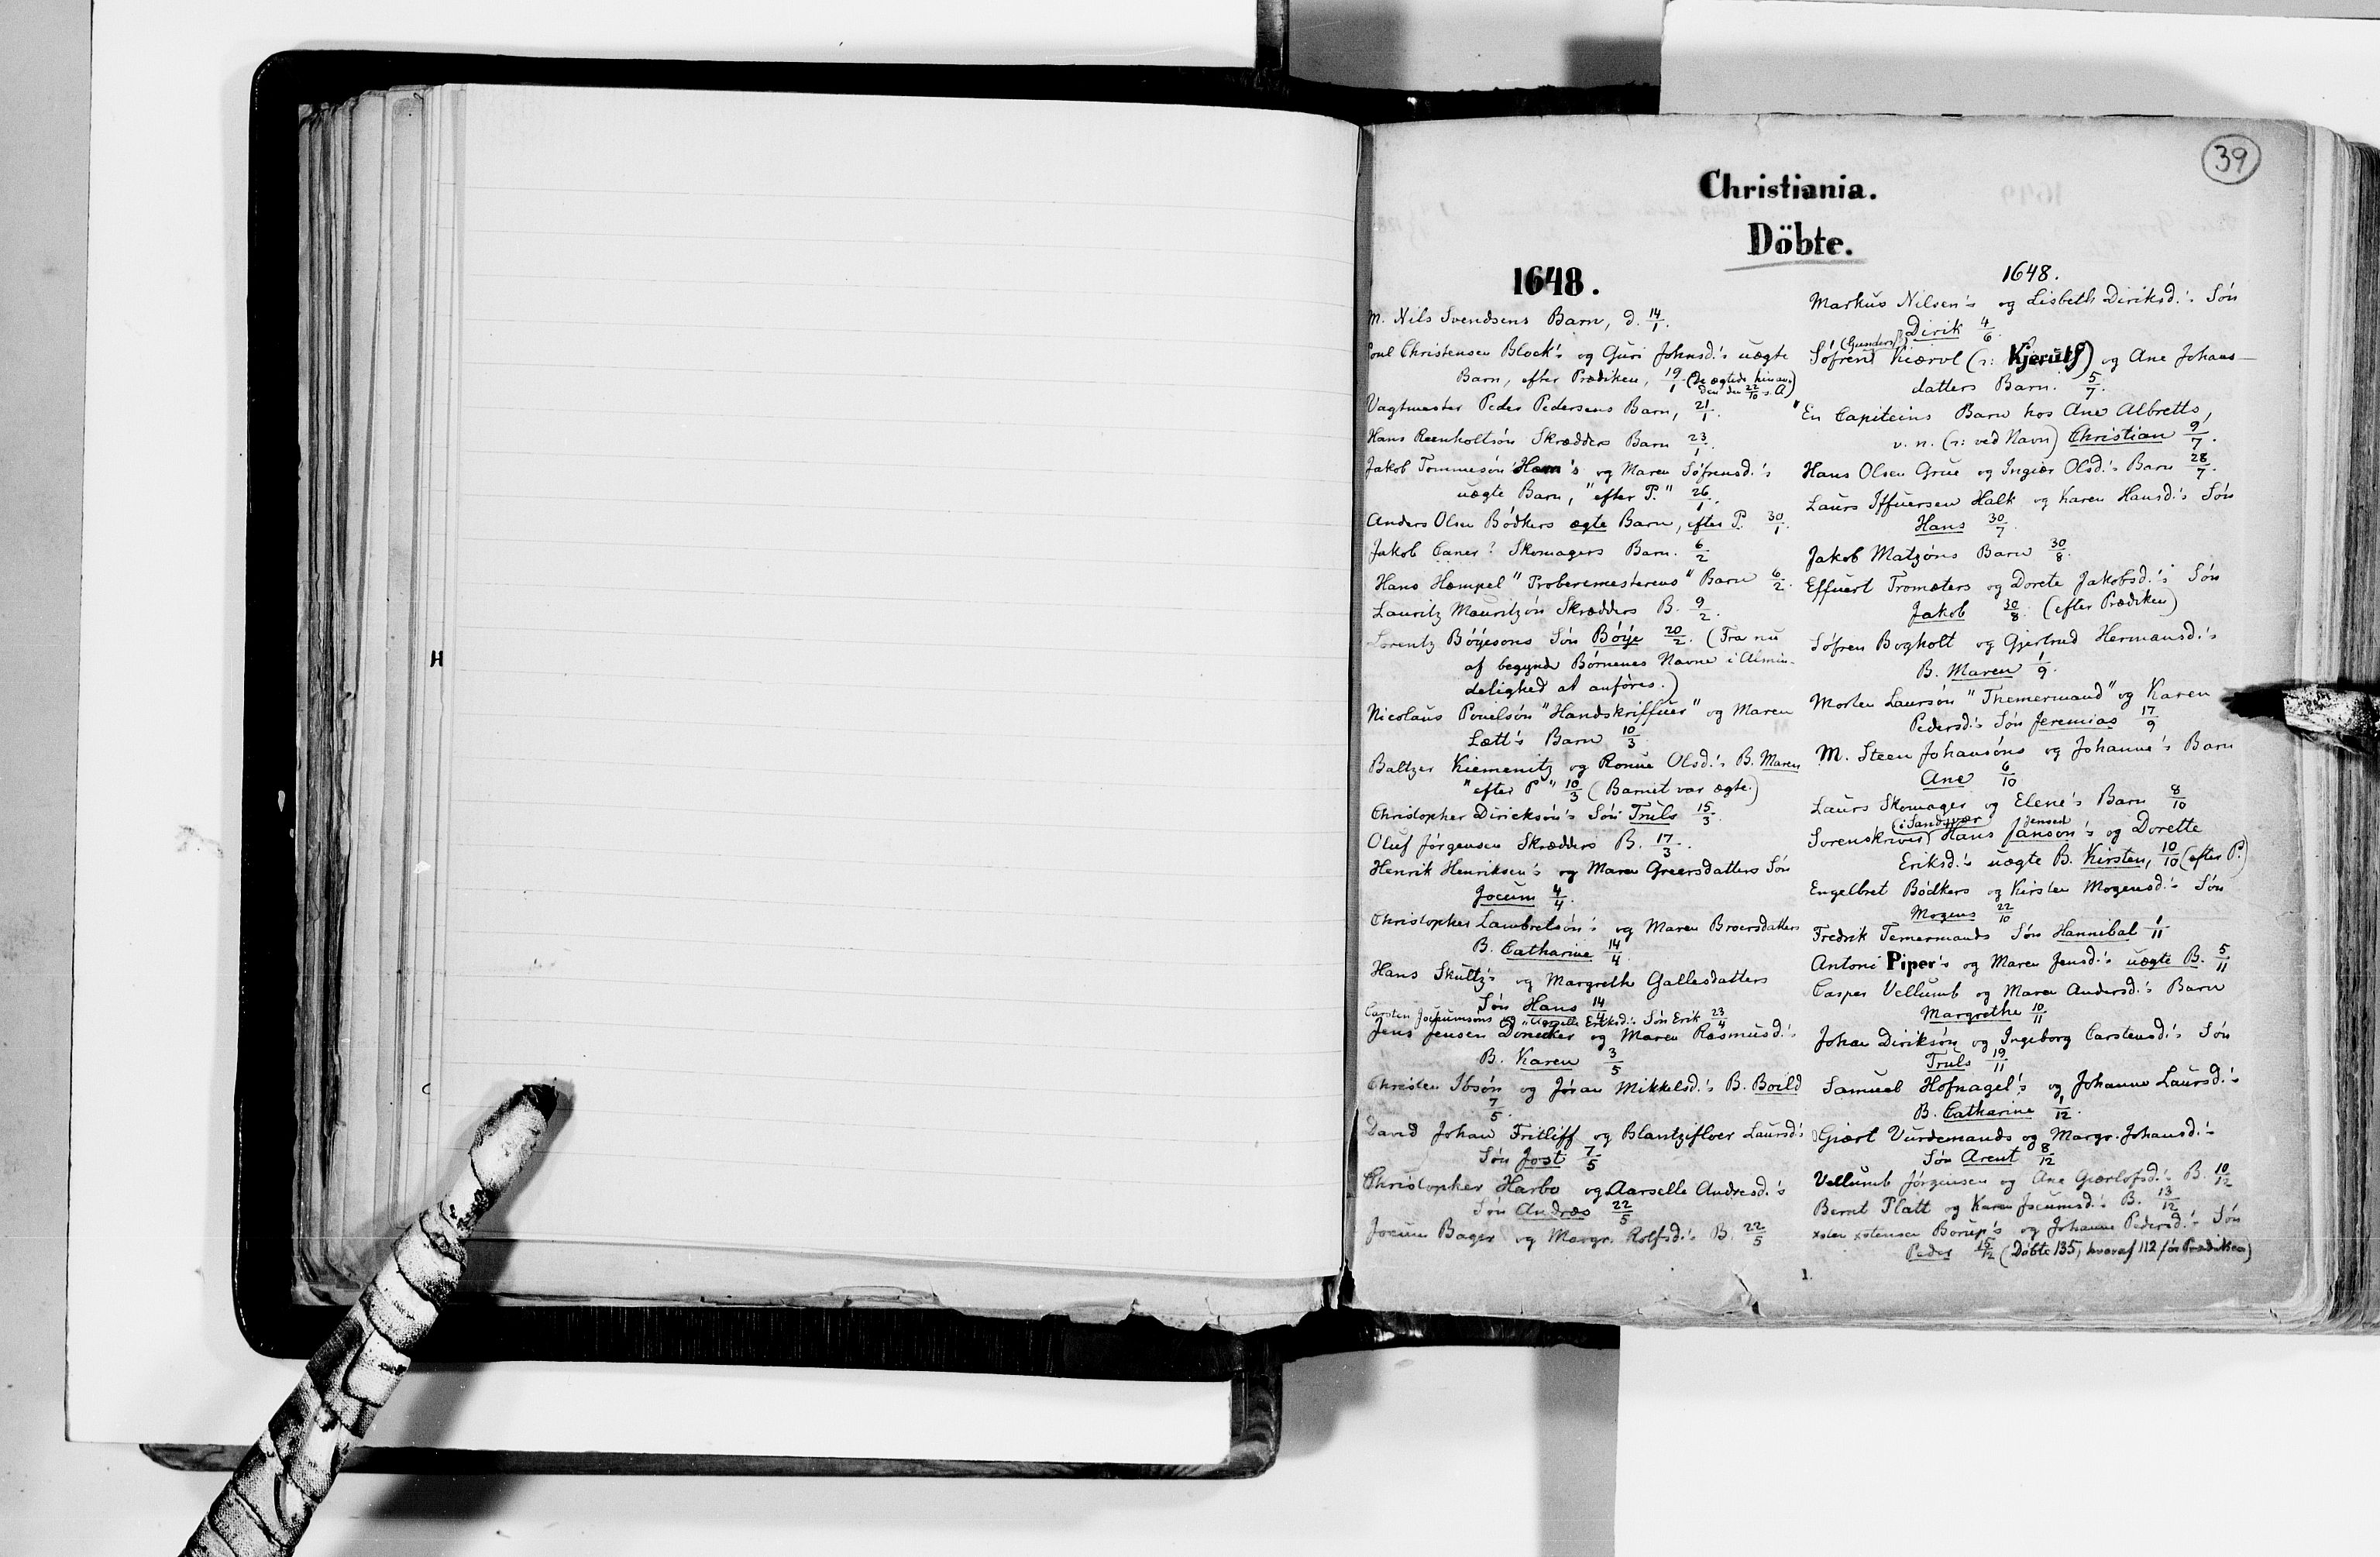 39
Christiania.
Döbte.
1648.
M. Nils Svendsens Barn, d. 14/1.
Poul Christensen Block's og Guri Johnsd.'s uægte
Barn, efter Prædiken, 19/1 (De ægtede hinan-
den den 22/10 s. A)
Vagtmester Peder Pedersens Barn, 21/1.
Hans Reenholtsön Skrædders Barn 23/1.
Jakob Tommesön Ham's og Maren Söfrensd.'s
uægte Barn, "efter P." 26/1.
Anders Olsen Bödkers ægte Barn, efter P. 30/1.
Jakob Caner? Skomagers Barn. 6/2
Hans Hempel "Proberemesterens" Barn 6/2.
Lauritz Mauritzön Skrædders B. 9/2.
Lorentz Böÿesons Sön Böÿe 20/2. (Fra nu
af begynde Börnenes Navne i Almin-
delighed at anföres.)
Nicolaus Pouelsön "Handskriffuer" og Maren
Lætt's Barn 10/3
Baltzer Kiemenitz og Ronue Olsd.'s B. Maren
"efter P" 10/3 (Barnet var ægte.)
Christopher Diricksön's Sön Truls 15/3.
Oluf Jörgensen Skrædders B. 17/3.
Henrik Henriksen's og Maren Greersdatters Sön
Jocum 4/4.
Christopher Lambretsön's og Maren Broersdatters
B. Catharine 14/4.
Hans Skultz's og Margrethe Gallesdatters
Sön Hans 14/4
Carsten Jochumsøns og Eriksd.'s Sön Erik 23/4
Jens Jensen Dönecker og Maren Rasmusd.'s
B. Karen 3/5
Christen Ibsön og Jöran Mikkelsd.'s B. Boild
7/5.
David Johan Fritliff og Blantzifloer Laursd's
Sön Jost 7/5
Christopher Harbo og Aarselle Andresd.'s
Sön Andræs 22/5
Jocum Bager og Margr. Rolfsd.'s B. 22/5
1648.
Markus Nilsen's og Lisbeth Diriksd.'s Sön
Dirik 4/6.
(Gunders?)
Söfren Kiærvl (ɔ: Kjerulf) og Ane Johans-
datters Barn. 5/7.
En Capiteins Barn hos Ane Albretts,
v. n. (ɔ: ved Navn) Christian 9/7.
Hans Olsen Grue og Ingier Olsd.'s Barn 28/7.
Laurs Iffuersen Halk og Karen Hansd.'s Sön
Hans 30/7
Jakob Matzöns Barn 30/8.
Effuert Tromæters og Dorete Jakobsd.'s Sön
Jakob 30/8. (efter Prædiken)
Söfren Bogholt og Gjertrud Hermansd.'s
B. Maren 1/9.
Morten Laursön "Themermand" og Karen
Pedersd.'s Sön Jeremias 17/9
M. Steen Johansöns og Johanne's Barn
Ane 6/10
Laurs Skomager og Elene's Barn 8/10
(i Sandsvær) Jensen
Sorenskriver Hans Janson's og Dorette
Eriksd.'s uægte B. Kirsten, 10/10 (efter P.)
Engelbret Bödkers og Kirsten Mogensd.'s Sön
Mogens 22/10
Fredrik Temermands Sön Hannibal 1/11
Antoni Piper's og Maren Jensd.'s uægte B. 5/11
Casper Vellumb og Maren Andersd.'s Barn
Margrethe 10/11
Johan Diriksön og Ingeborg Carstensd.'s Sön
Truls 19/11
Samuel Hofnagel's og Johanne Laursd.'s
B. Catharine 1/12.
Giært Vurdemands og Margr. Johansd.'s
Sön Arent 8/12
Vellumb Jörgensen og Ane Giærlofsd.'s B. 10/12
Bernt Platt og Karen Jocumsd.'s B. 13/12
xsten xstensen Borup's og Johanne Pedersd.'s Sön
Peder 15/12 (Döbte 135, hvoraf 112 för Prædiken)
1.